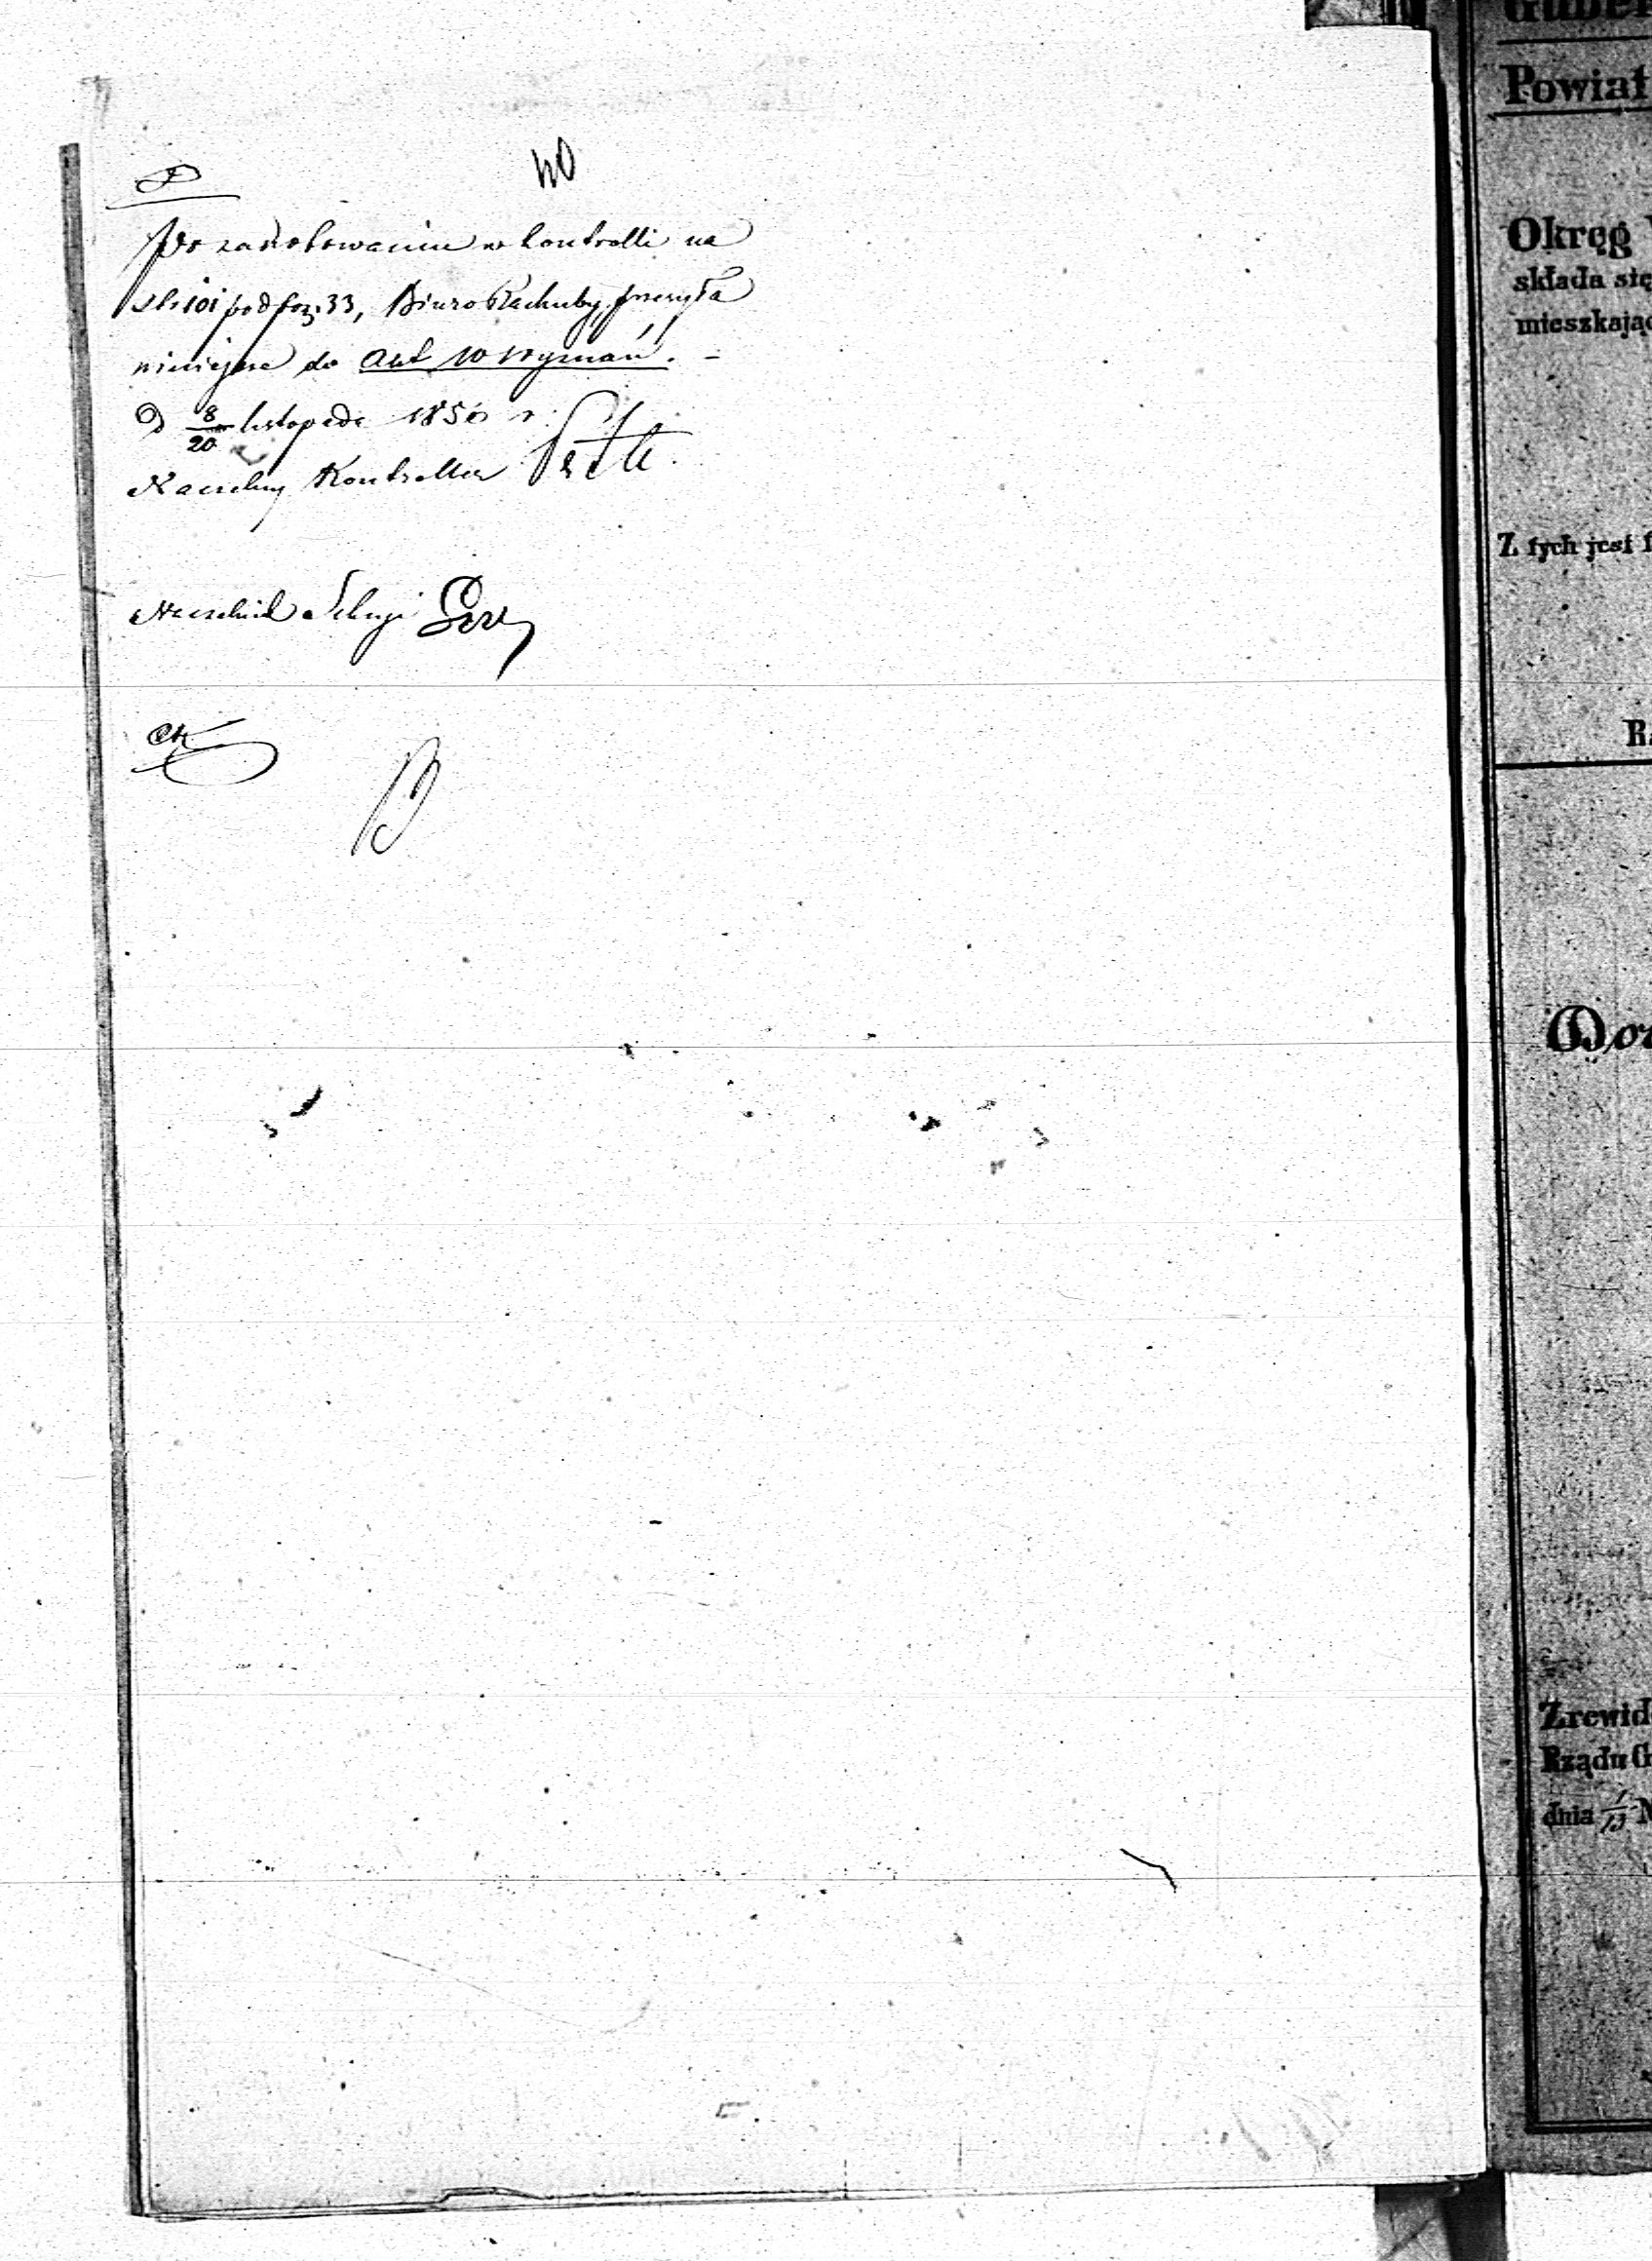 40
Po zanotowaniu w kontrolli na
str: 101 pod poz: 33, Biuro Rachuby przesyła
niniejsze do Akt Wyznań. -
D 8/20 listopada 1856 r.
Naczelny Kontroller
Naczelnik Sekcyi
Guber
Powiat
Okręg
składa się
mieszkając
Z tych jest
Zrewid
Rządu G
dnia 1/13